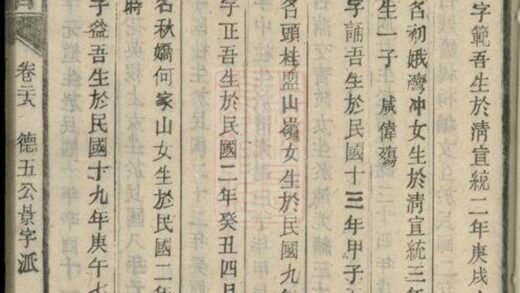 字範吾生於清宣統二年庚戌
名初娥灣冲女生於清宣統三年
生一子 咸偉殤
字誦吾生於民國十三年甲子
名頭桂盟山嶺女生於民國九年
字正吾生於民國二年癸丑四月
名秋嬌何家山女生於民國二
時
字益吾生於民國十九年庚午七
卷二六 德五公景字派